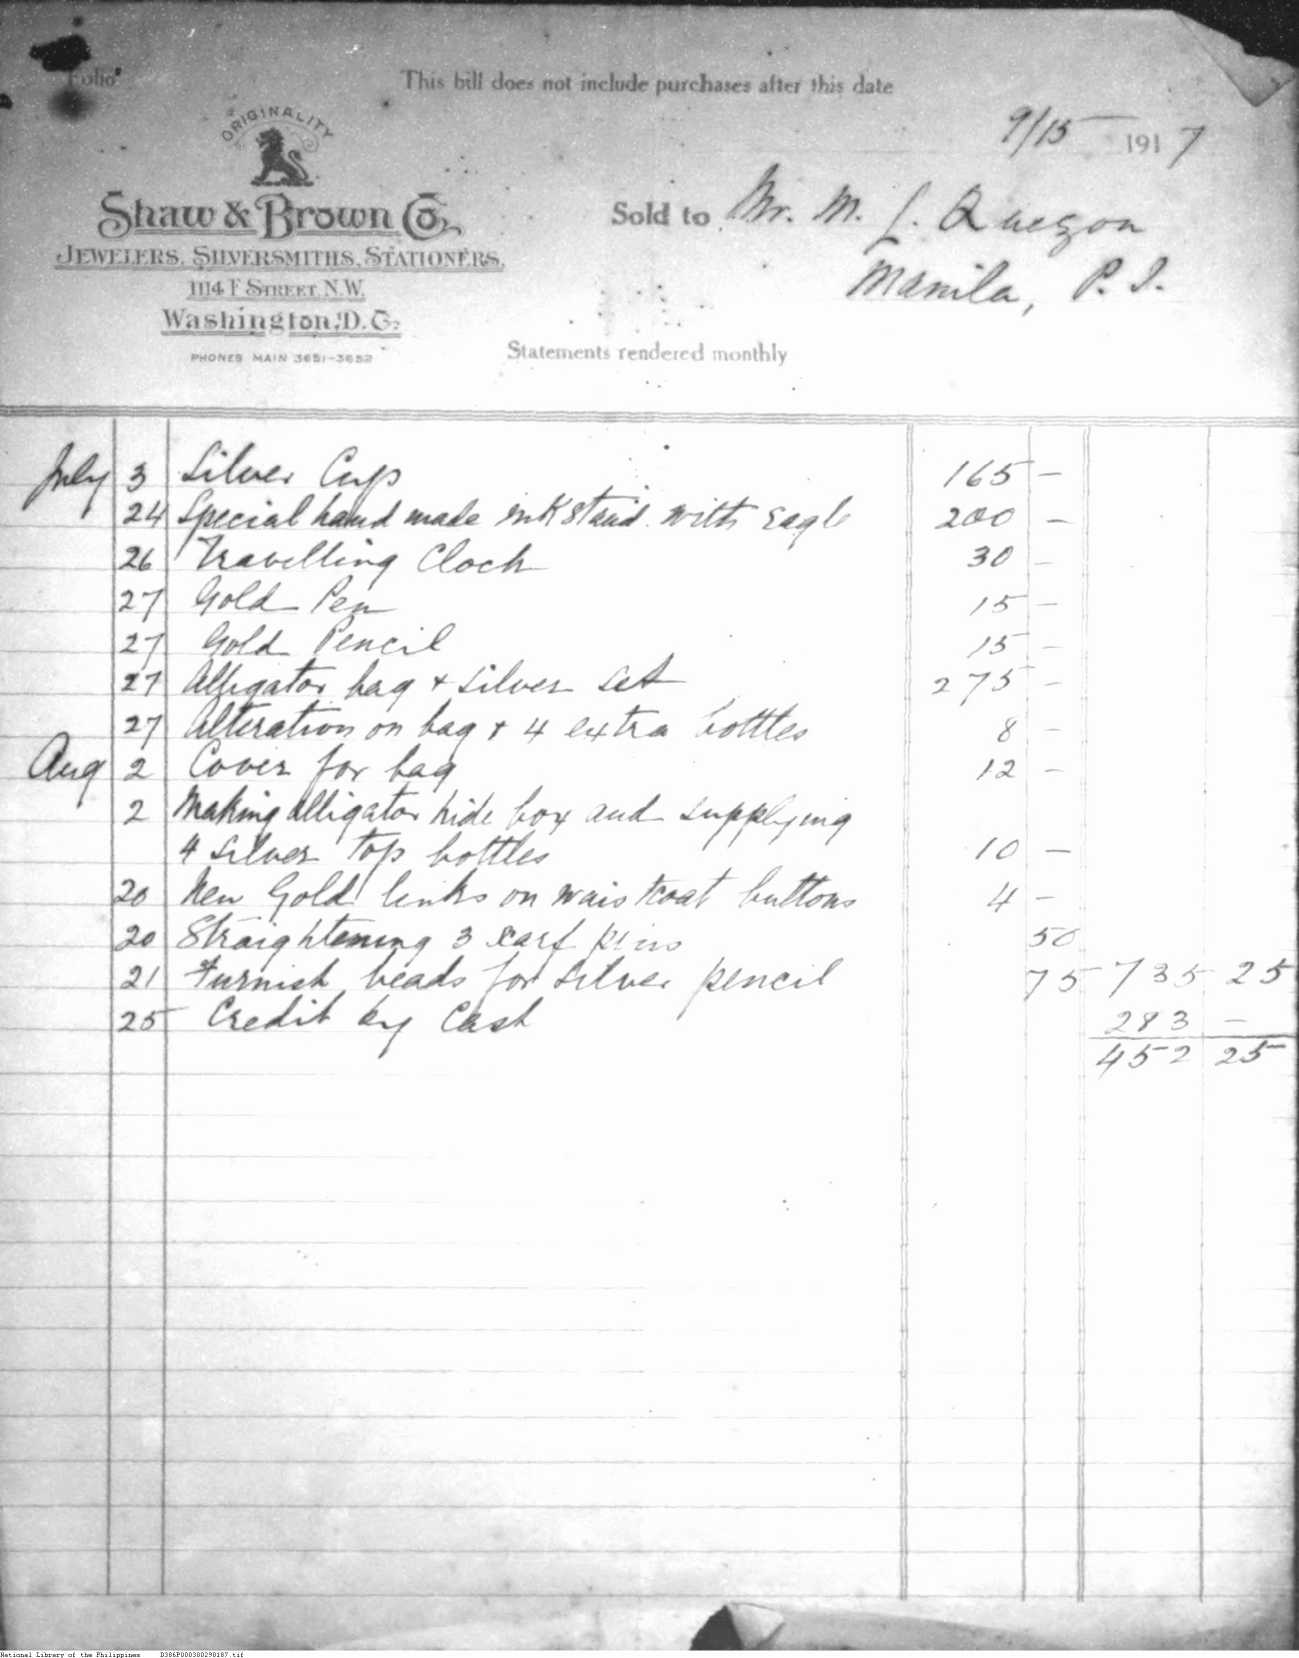 Folio
This bill does not include purchases after this date
9/15 1917
ORIGINALITY
Shaw & Brown Co.
JEWELERS, SILVERSMITHS, STATIONERS,
1114 F STREET, N.W.
Washington, D.C.
PHONES MAIN 3651-3652
Sold to Mr. M. L. Quezon
Manila, P. I.
Statements rendered monthly
July 3 Silver Cup 165 -
24 Special hand made inkstand with Eagle 200 -
26 Travelling Clock 30 -
27 Gold Pen 15 -
27 Gold Pencil 15 -
27 Alligator bag + silver set 275 -
27 Alteration on bag + 4 extra bottles 8 -
Aug 2 Cover for bag 12 -
2 Making alligator hide box and supplying
4 silver top bottles 10 -
20 New Gold links on waistcoat buttons 4 -
20 Straightening 3 scarf pins 50
21 Furnish leads for silver pencil 75 735 25
25 Credit by Cash 283 -
452 25
National Library of the Philippines D386P000300290187.tif